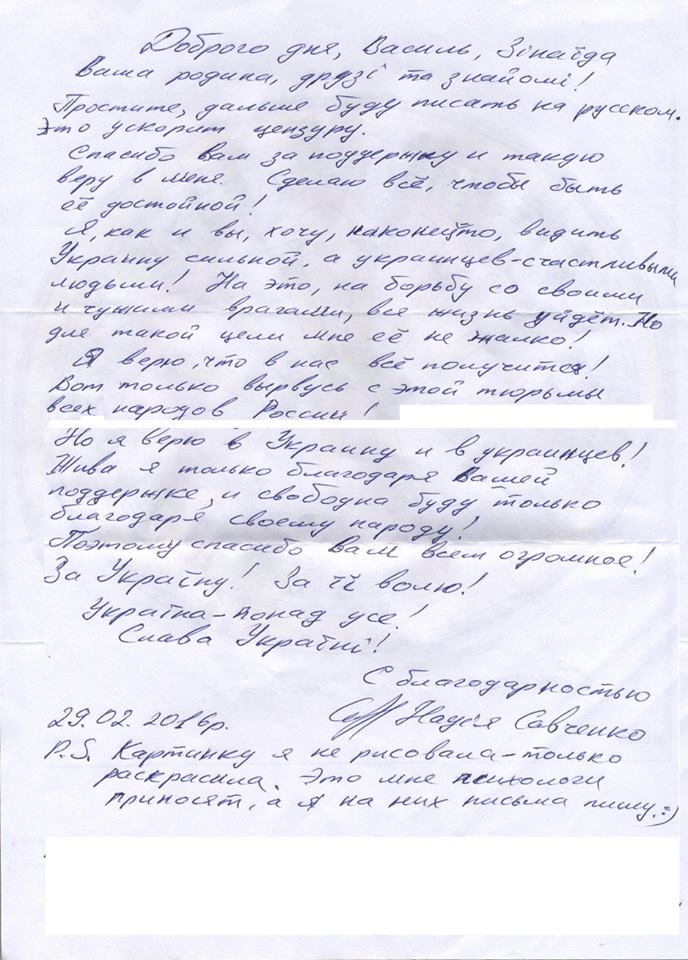 Доброго дня, Василь, Зінаїда
ваша родина, друзі та знайомі!
Простите, дальше буду писать на русском.
Это ускорит цензуру.
Спасибо вам за поддержку и такую
веру в меня. Сделаю всё, чтобы быть
её достойной!
Я, как и вы, хочу, наконец-то, видить
Украину сильной, а украинцев-счастливыми
людьми! На это, на борьбу со своими
и чужими врагами, вся жизнь уйдёт. Но
для такой цели мне её не жалко!
Я верю, что в нас всё получится!
Вот только вырвусь с этой тюрьмы
всех народов России!
Но я верю в Украину и в украинцев!
Жива я только благодаря вашей
поддержке, и свободна буду только
благодаря своему народу!
Поэтому спасибо вам всем огромное!
За Україну! За її волю!
Україна-понад усе!
Слава Україні!
С благодарностью
Надія Савченко
29.02.2016р.
P.S. Картинку я не рисовала-только
раскрасила. Это мне психологи
приносят, а я на них письма пишу.:)